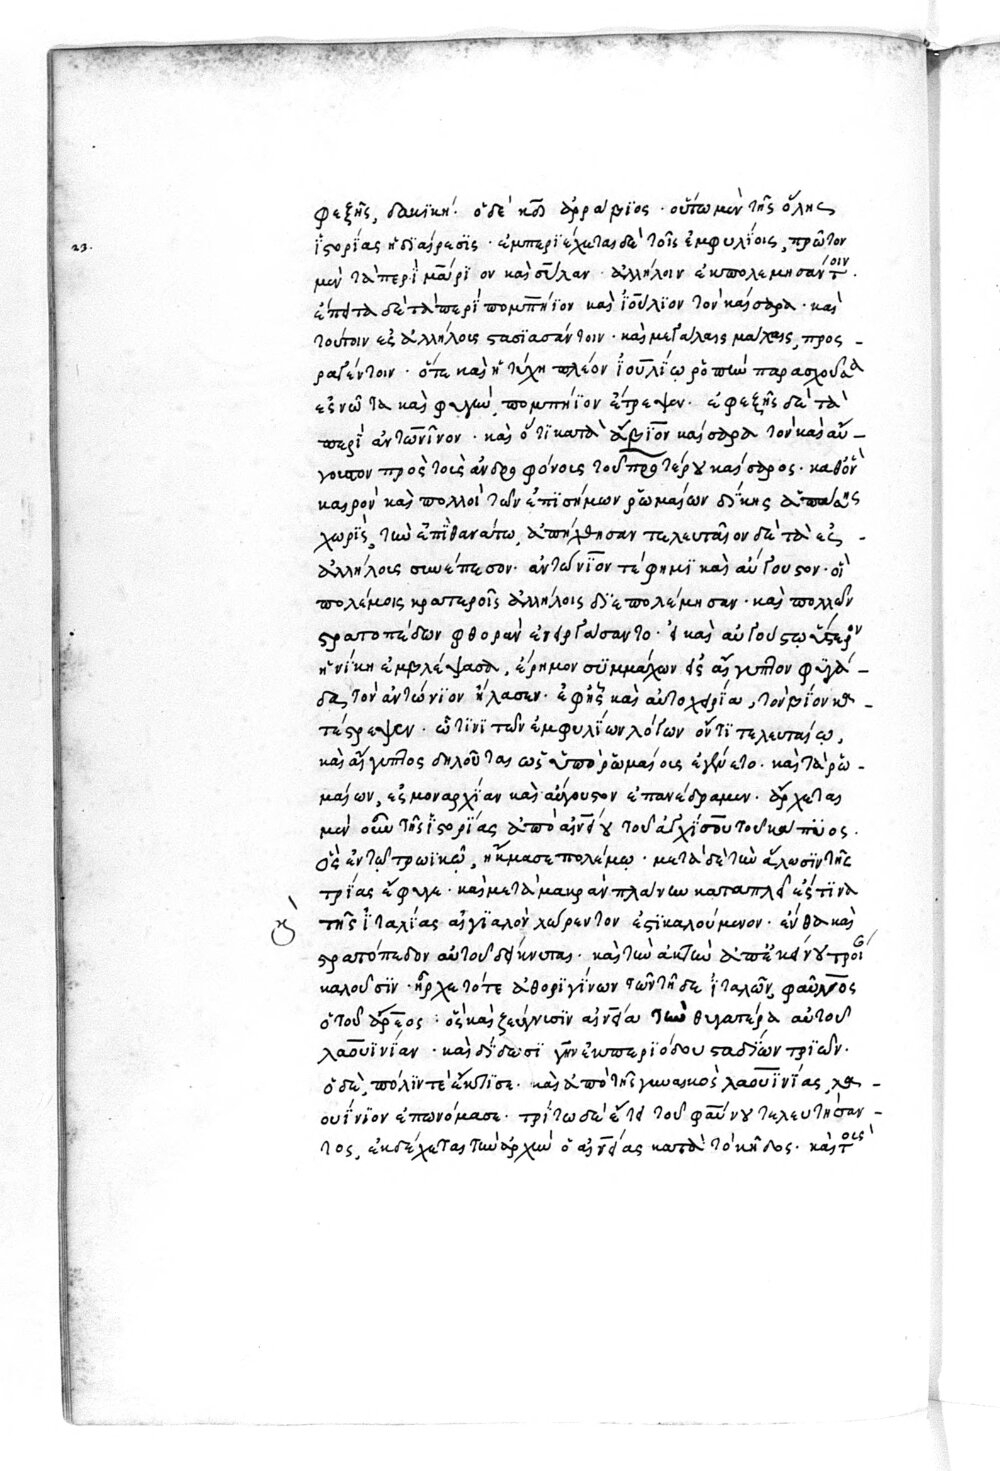 φεξῆς, δακϊκή· ὁ δὲ κδ ἀρράβϊος· οὕτω μὲν τῆς ὅλης
ἱστορίας ἡ διαίρεσϊς· ἐμπεριέχεται δὲ τοῖς ἐμφυλίοις, πρῶτον
μὲν τὰ περὶ μάριον καὶ σύλαν· ἀλλήλοιν ἐκπολεμησάντοιν·
ἔπειτα δὲ τὰ περὶ πομπήϊον καὶ ἰούλϊον τὸν καίσαρα· καὶ
τούτοιν ἐξ ἀλλήλοις στασϊασάντοιν· καὶ μεγάλαις μάχαις, προσ-
ραγέντοιν· ὅτε καὶ ἡ τύχη πλέον ἰουλΐῳ ῥοπὴν παρασχοῦσα
ἐς νῶτα καὶ φυγὴν, πομπήϊον ἔτρεψεν· ἐφεξῆς δὲ τὰ
περὶ ἀντωνῖνον· καὶ ὅτι κατὰ ἄβϊον καίσαρα τὸν καὶ αὔ-
γουστον πρὸς τοὺς ἀνδροφόνοις τοῦ προτέρου καίσαρος· καθ' ὃν
καιρὸν καὶ πολλοὶ τῶν ἐπισήμων ῥωμαίων δίκης ἁπάσης
χωρὶς, τὴν ἐπὶ θανάτω, ἀπήχθησαν τελευταῖον δὲ τὰ ἐξ-
ἀλλήλοις συνέπεσον· ἀντώνϊον τέ φημϊ καὶ αὔγουστον· οἳ
πολέμοις κρατεροῖς ἀλλήλοις διεπολέμησαν· καὶ πολλῶν
στρατοπέδων φθορὰν ἐνειργάσαντο· εἰ καὶ αὐγούστῳ ὕστερον
ἡ νίκη ἐμβλέψασα, ἔρημον συμμάχων εἰς αἴγυπτον φυγά-
δα, τὸν ἀντώνϊον ἤλασεν· ἐφ' ἧς καὶ αὐτοχειρία, τὸν βίον κα-
τέστρεψεν· ὧτινι τῶν ἐμφυλίων λόγων ὄντϊ τελευταίῳ,
καὶ αἴγυπτος δηλοῦται ὡς ὑπὸ ῥωμαίοις ἐγένετο· καὶ τὰ ῥω-
μαίων, ἐς μοναρχίαν καὶ αὔγουστον ἐπανέδραμεν· ἄρχεται
μὲν οὖν τῆς ἱστορίας ἀπὸ αἰνείου τοῦ ἀγχίσου τοῦ κάπϋος·
ὃς ἐν τῷ τρωϊκῷ, ἤκμασε πολέμῳ· μετὰ δὲ τὴν ἅλωσϊν τῆς
τρίας ἔφυγε· καὶ μετὰ μακρὰν πλάνην καταπλεῖ ἔς τϊνα
τῆς ἰταλίας αἰγϊαλὸν λώρεντον ἐπικαλούμενον· ἔνθα καὶ
στρατόπεδον αὐτοῦ δείκνυται· καὶ τὴν ἀκτὴν ἀπ' ἐκείνου τροί
καλοῦσϊν· ἦρχε τότε ἀβοριγίνων τῶν τῆδε ἰταλῶν, φαῦνος
ὁ τοῦ ἄρεος· ὃς καὶ ζεύγνισϊν αἰνεία τὴν θυγατέρα αὐτοῦ
λαουϊνίαν· καὶ δίδωσϊ γῆν ἐκ περιόδου σταδίων τριῶν·
ὁ δὲ, πόλϊν τὲ ἔκτϊσε· καὶ ἀπὸ τῆς γυναικὸς λαουϊνίας, λα-
ουίνϊον ἐπωνόμασε· τρίτω δὲ ἔτει τοῦ φαύνου τελευτήσαν-
τος, ἐκδέχεται τὴν ἀρχὴν ὁ αἰνείας κατὰ τὸ κῆδος· καὶ τοὺς